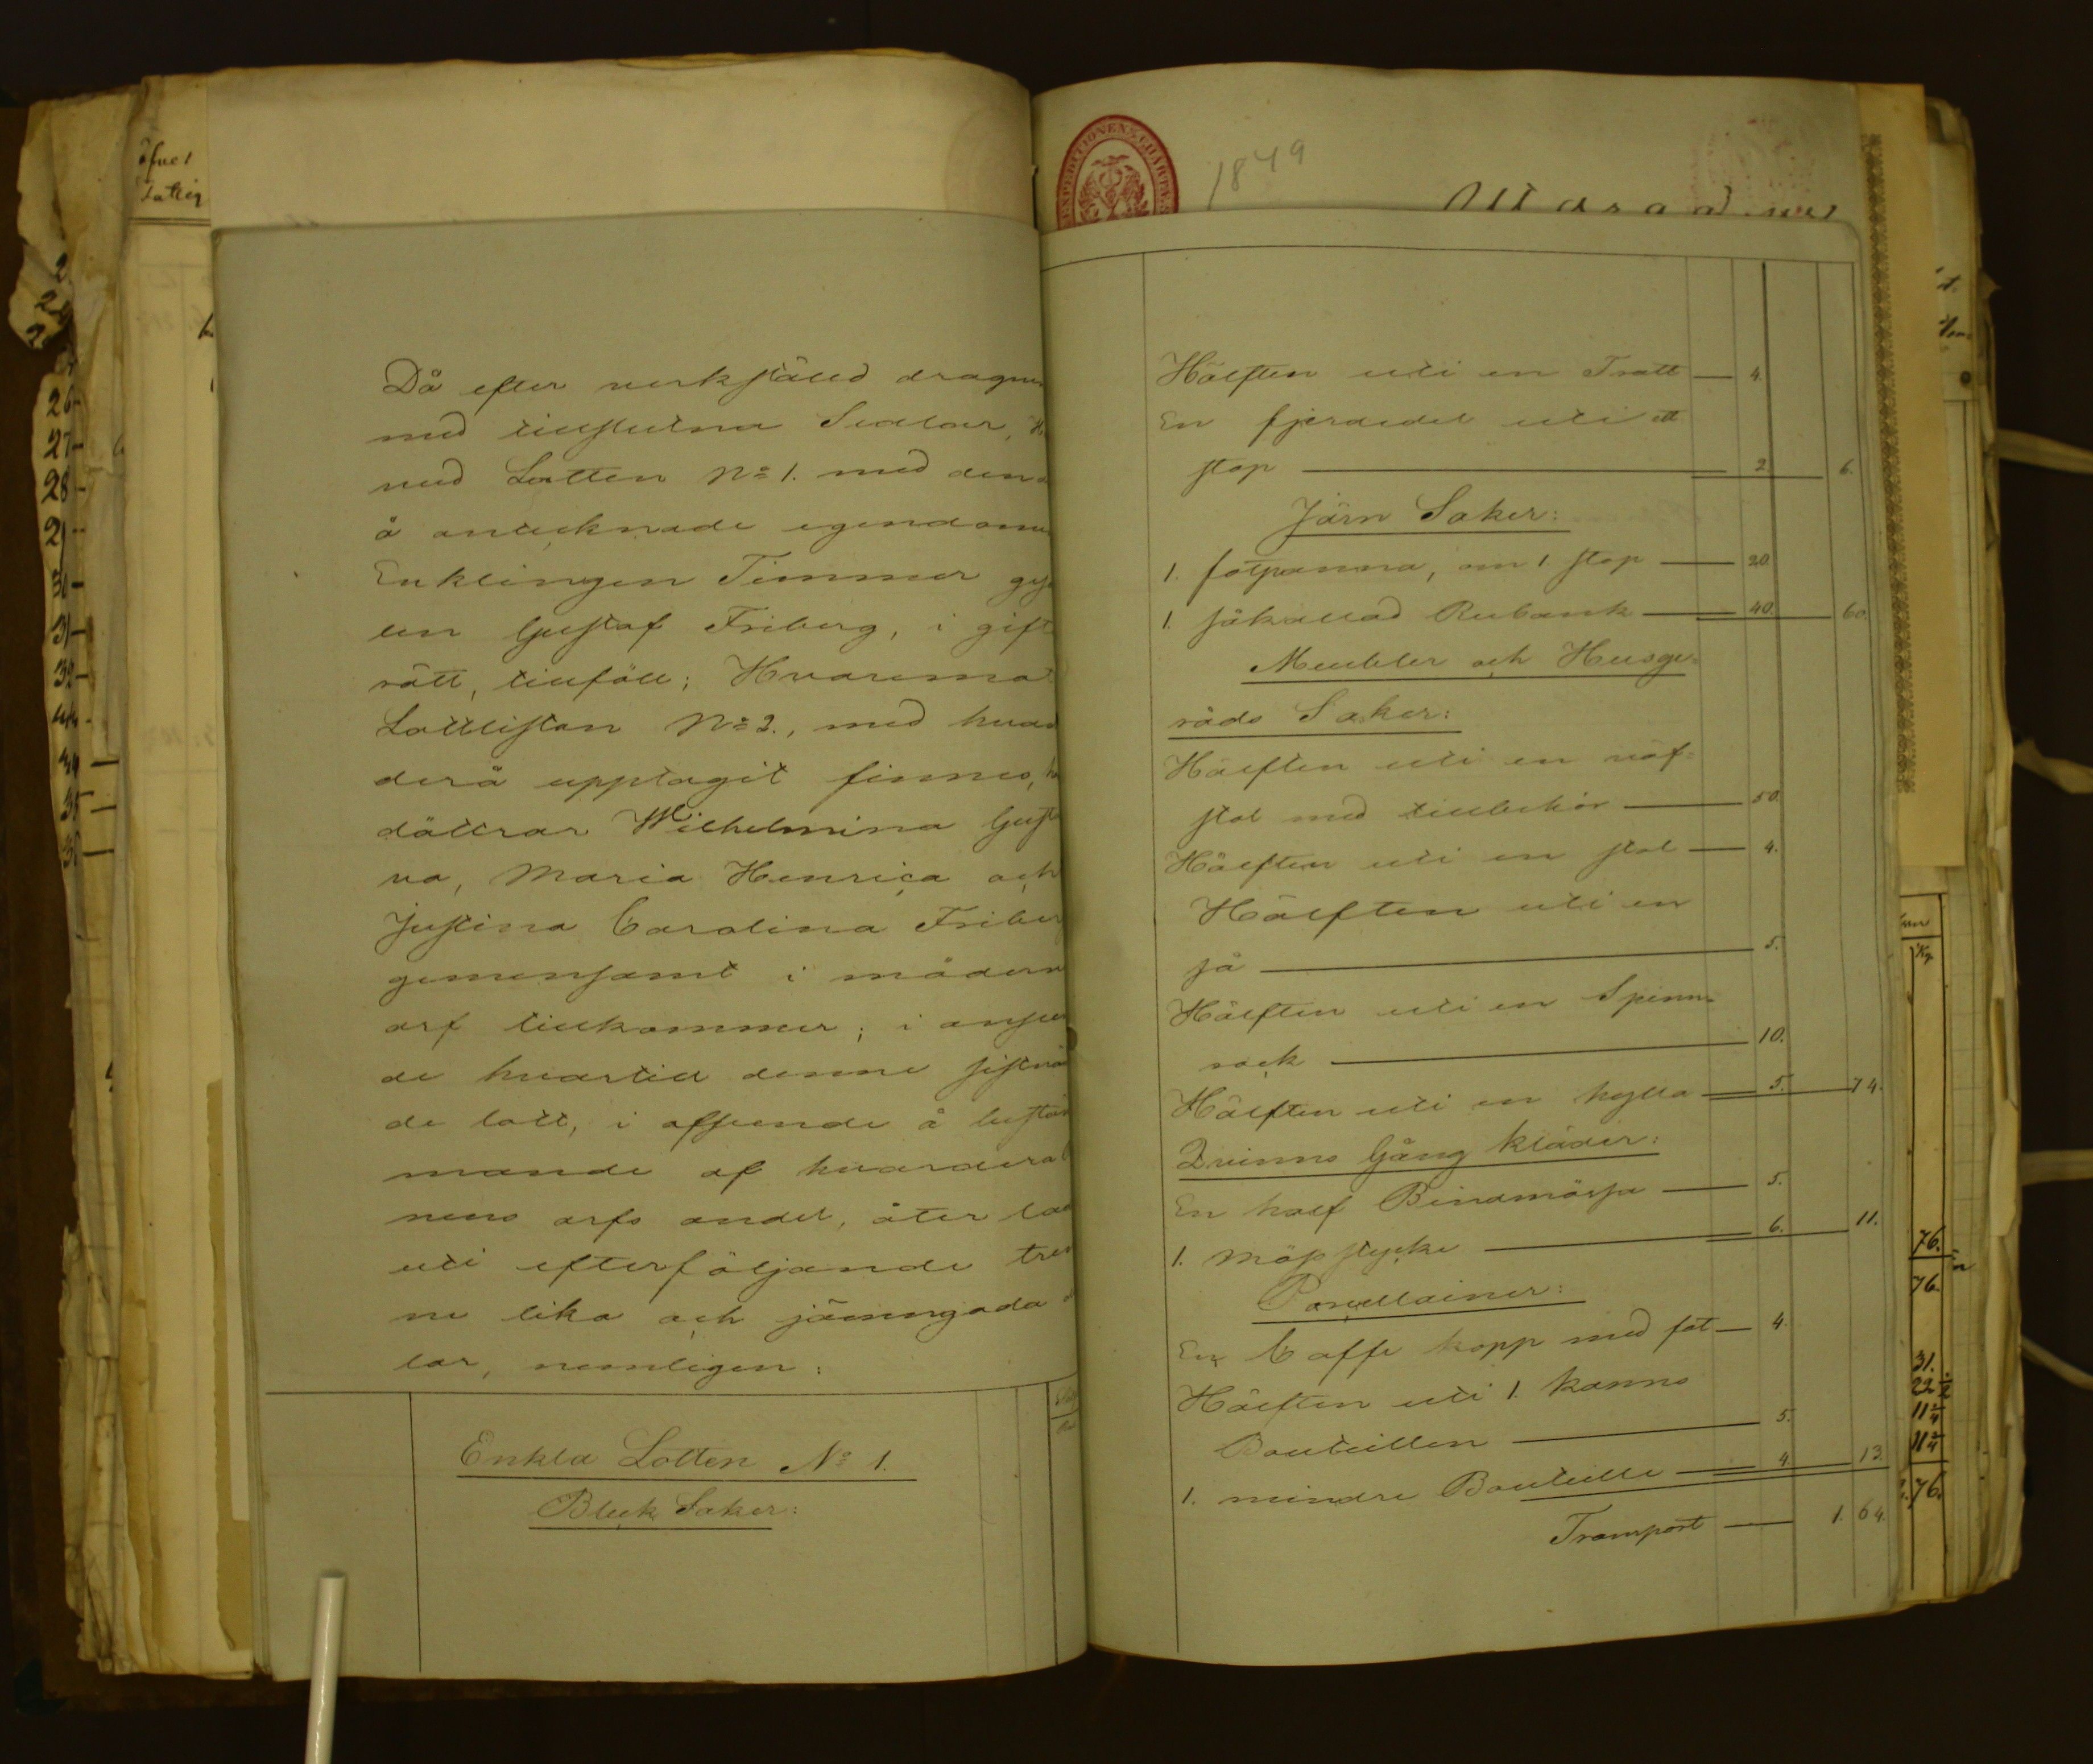 Då efter verkstäld dragni
med tillslutna Sedlar,
med Lotten No 1. med den
å antecknade egendom
Enklingen Timmer ges
len Gustaf Friberg, i gift
rätt, tillföll; Hvaremot
Lottlistan No 2., med hvad
derå upptagit finnes,
döttrar Wilhelmina Gusta
va, Maria Henrica och
Justina Carolina Friber
gemensamt i mödern
arf tillkommer; i anseen
de hvartill denne sistnäm
de lott, i afseende å bestäm
mande af hvardera
nens arfs andel, åter
uti efterföljande tren
ne lika och jämngoda
lar, nemligen:
Enkla Lotten No 1.
Bleck Saker:
1849
Hälften uti en Tratt 4.
En fjerdedel uti ett
stop 2. 6.
Järn Saker:
1. fotpanna, om 1 stop 20.
1. såkallad Rubank 40. 60.
Meubler och Husge-
råds Saker:
Hälften uti en väf-
stol med tillbehör 50.
Hälften uti en stol 4.
Hälften uti en
så 5.
Hälften uti en Spinn-
rock 10.
Hälften uti en hylla 5. 74.
Qvinns Gång kläder:
En half Bindmössa 5.
1. Möss stycke 6. 11.
Porcellainer:
En Caffe kopp med fat 4.
Hälften uti 1. kanns
Bouteillen 5.
1. mindre Bouteille 4. 13.
Transport 1. 64.
26
27
28
76.
76.
31.
22 1/2
11 1/4
11 1/4
76.